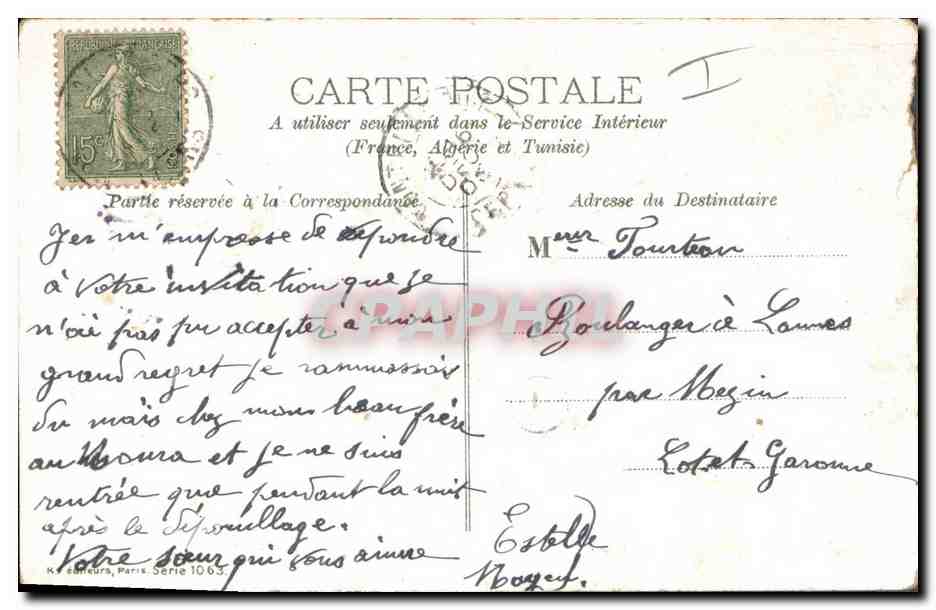 REPUBLIQUE FRANÇAISE
15c
CARTE POSTALE
A utiliser seulement dans le Service Intérieur
(France, Algérie et Tunisie)
Partie réservée à la Correspondance
Adresse du Destinataire
Jer m'empresse de répondre
à votre invitation que je
n'ai pas pu accepter à mon
grand regret je rammassais
du maïs chez mon beau frère
au et je ne suis
rentrée que pendant la nuit
après le dépouillage.
Votre sœur qui vous aime
Estelle
Mr Tourteau
Boulanger à Lannes
par Mezin
Lot-et-Garonne
I
CPAPHIL
K. éditeurs, Paris. Série 1063